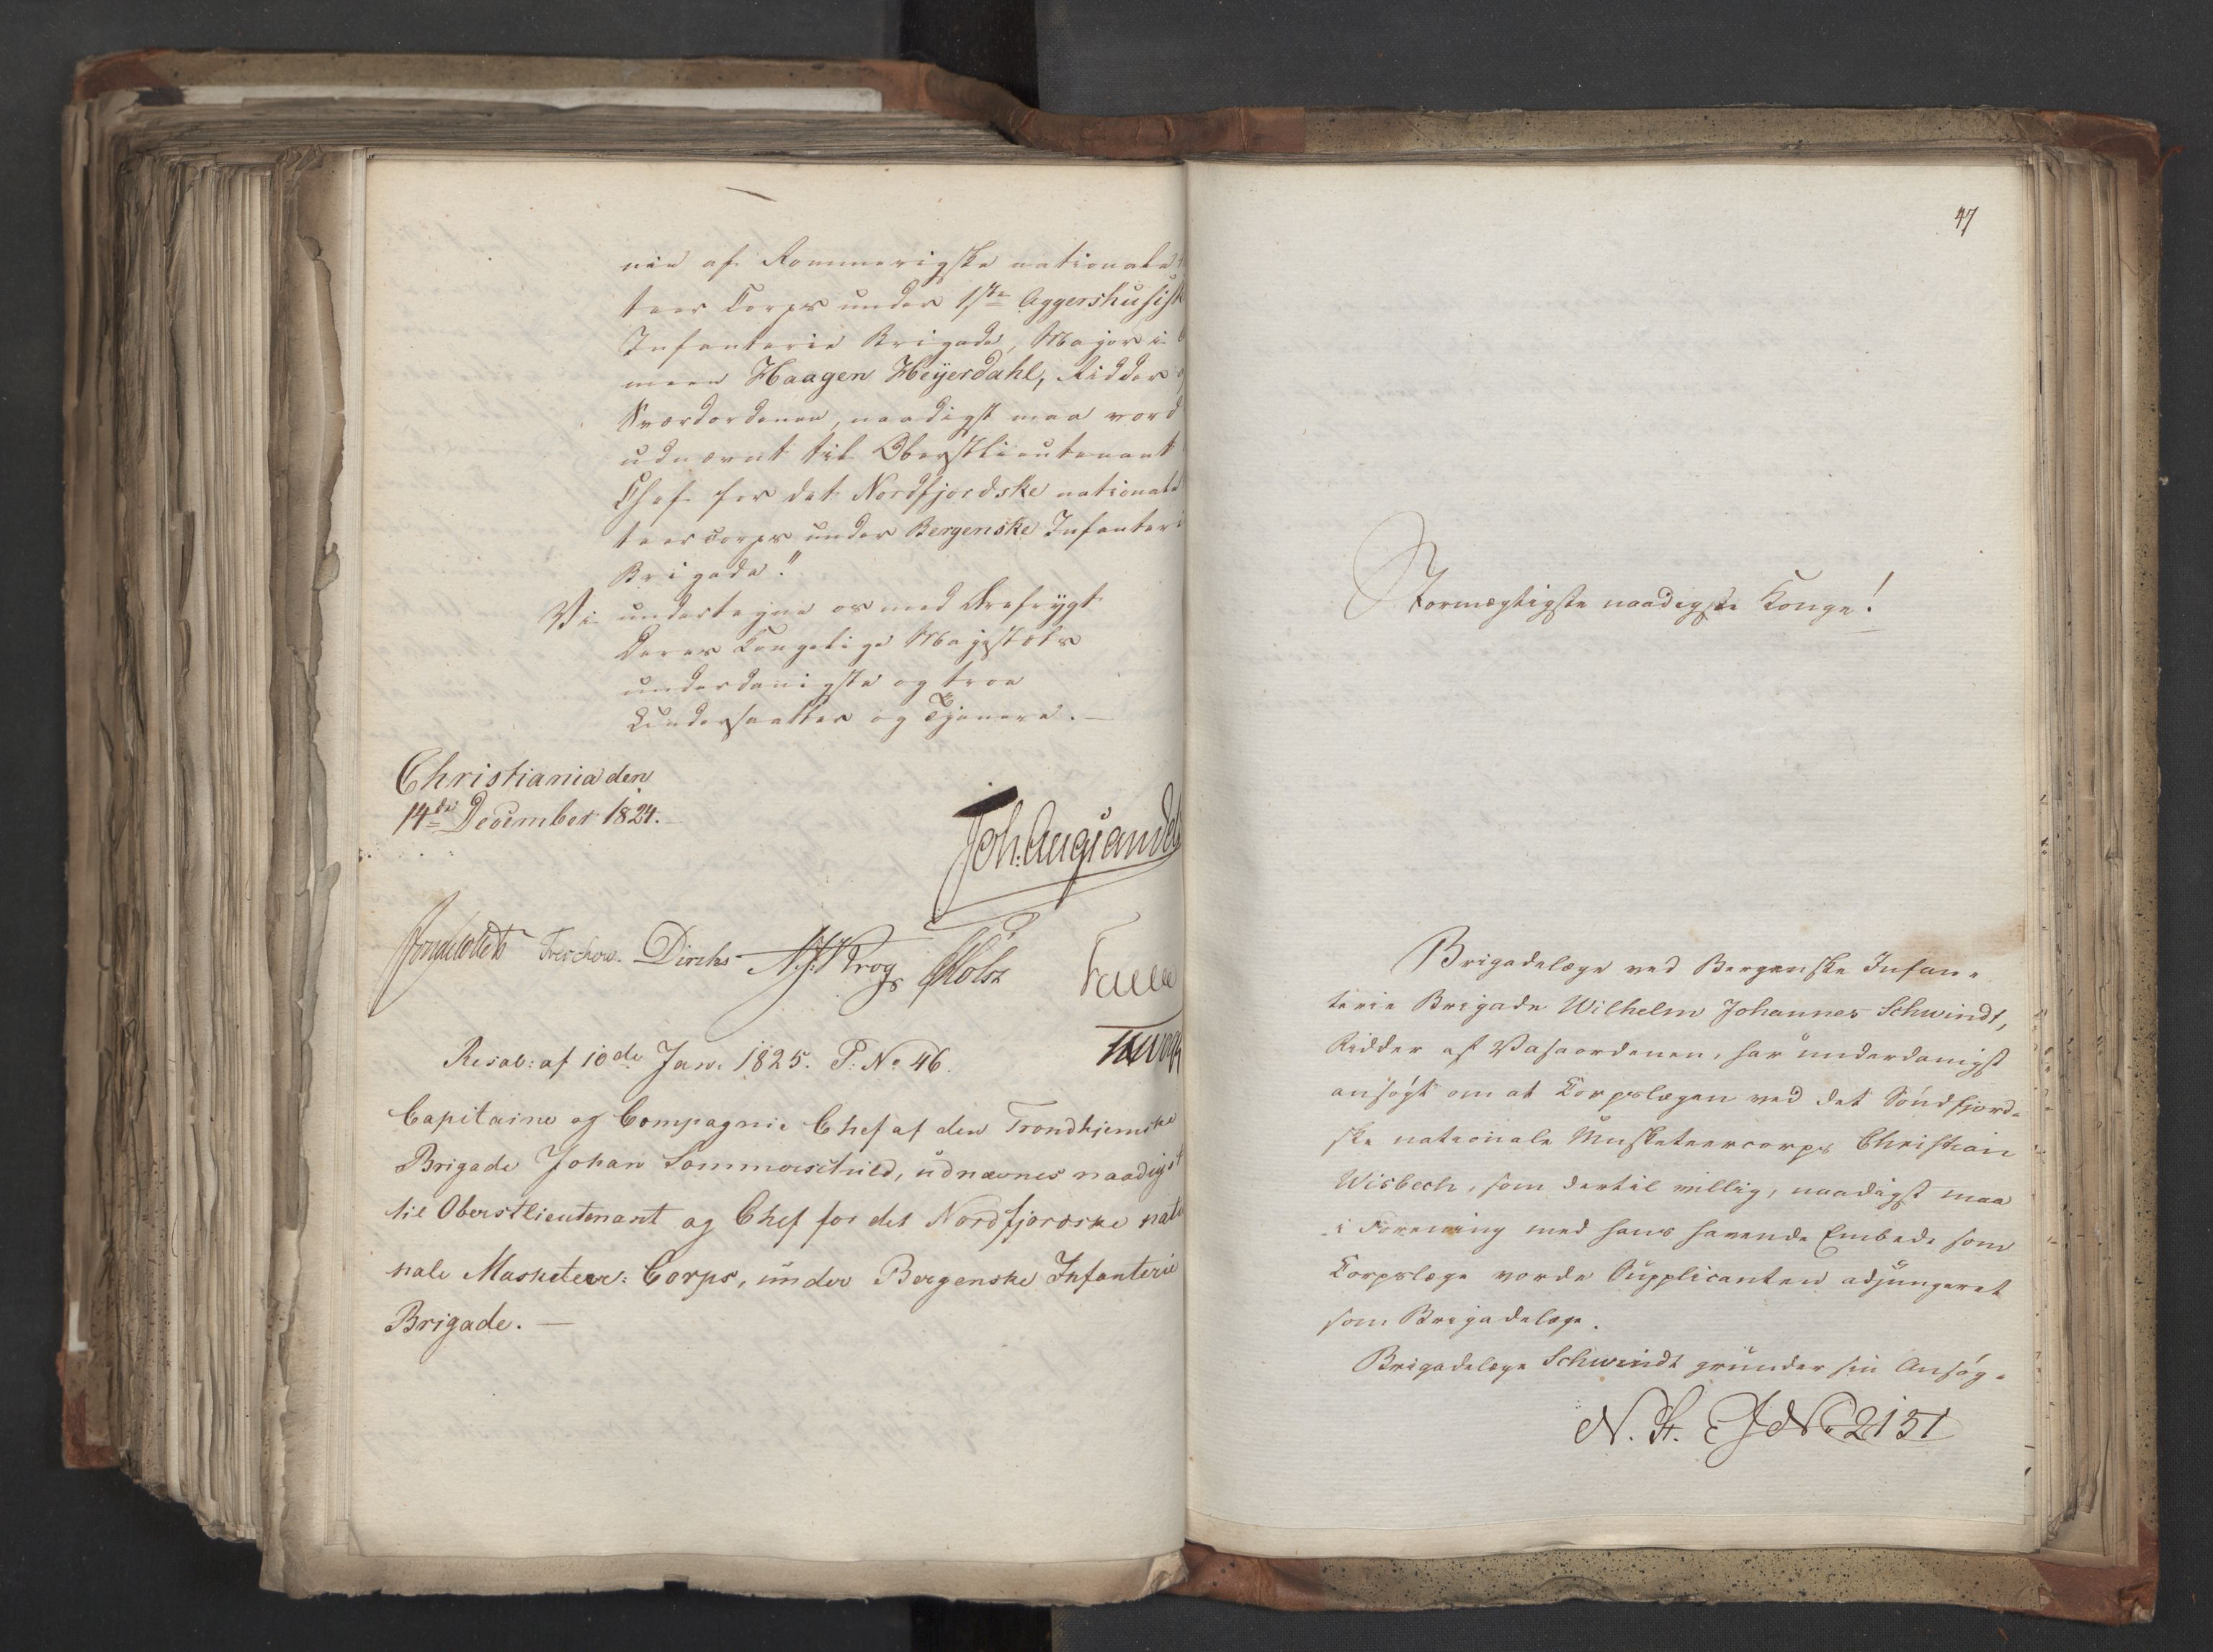 nie af Rommerigske nationale
teer Corps under 1ste Aggershusisk
Infanterie Brigade, Major i
meen Haagen Heyerdahl, Ridder
Sværdordenen, naadigst maa vord
udnævnt til Oberstlieutenant
Chef for det Nordfjordske nationale
teercorps under Bergenske Infanteri
Brigade."
Vi undertegne os med Ærefrygt
Deres Kongelige Majestæts
underdanigste og troe
Undersaatter og Tjenere. —
Christiania den
14de December 1824.
Joh. Aug. Sandels
Treschow. Diriks
Krog Holst
Fasting
Resol: af 10de Jan. 1825. P: No 46.
Capitaine og Compagnie Chef af den Trondhjemske
Brigade Johan Sommerschield, udnævnes naadigst
til Oberstlieutenant og Chef for det Nordfjordske nati
nale Musketeer: Corps, under Bergenske Infanterie
Brigade. —
47
Stormægtigste naadigste Konge!
Brigadelæge ved Bergenske Infan-
terie Brigade Wilhelm Johannes Schwindt,
Ridder af Vasaordenen, har underdanigst
ansøgt om at Corpslægen ved det Søndfjord-
ske nationale Musketeercorps Christian
Wisbech, som dertil villig, naadigst maa
i Forening med hans havende Embede som
Corpslæge vorde Supplicanten adjungeret
som Brigadelæge.
Brigadelæge Schwindt grunder sin Ansøg-
N. St. E. J No 2151